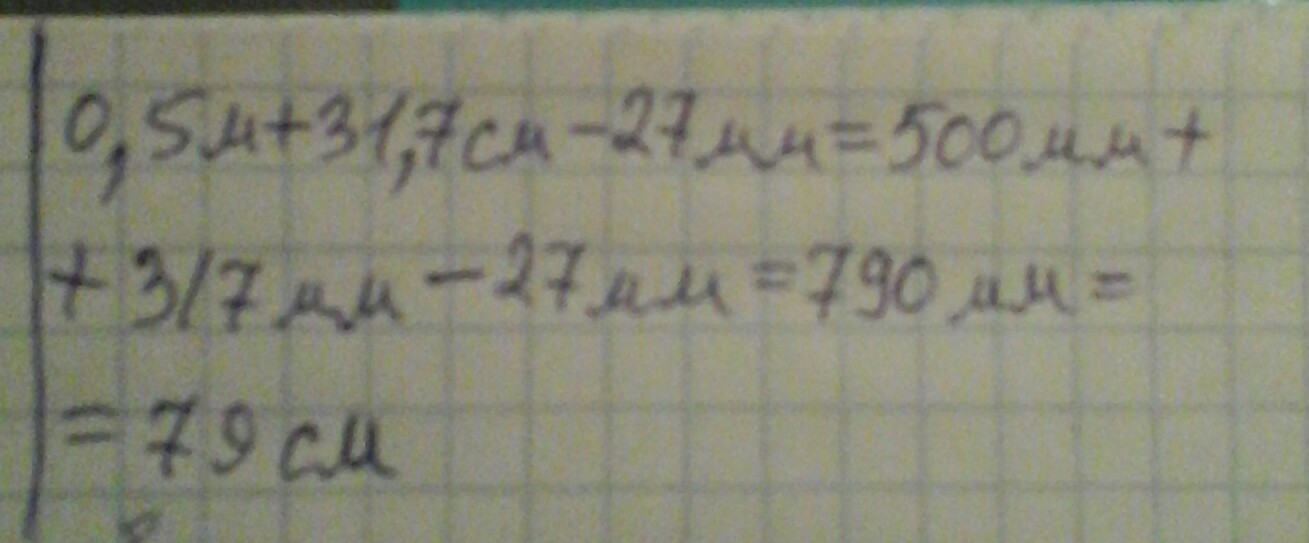 0,5м+31,7см-27мм=500мм+
+317мм-27мм=790мм=
=79см